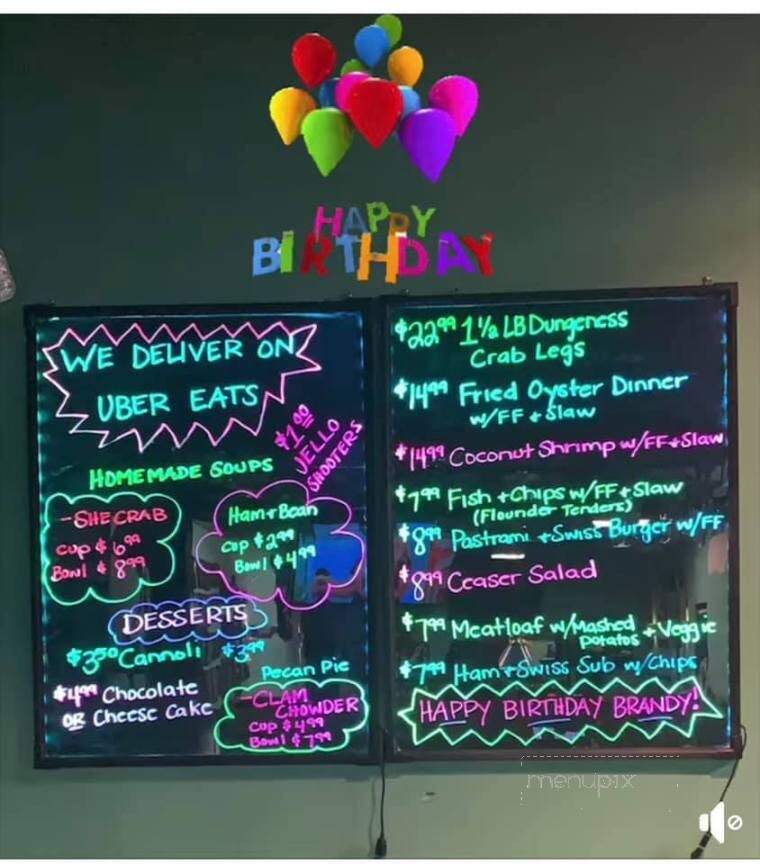 HAPPY
BIRTHDAY
WE DELIVER ON
UBER EATS
$1.00
JELLO
SHOOTERS
HOMEMADE SOUPS
-SHE CRAB
Cup $6.99
Bowl $8.99
Ham + Bean
Cup $2.99
Bowl $4.99
DESSERTS
$3.50 Cannoli
$3.99
Pecan Pie
$4.99 Chocolate
OR Cheese Cake
-CLAM
CHOWDER
Cup $4.99
Bowl $7.99
$22.99 1 1/2 LB Dungeness
Crab Legs
$14.99 Fried Oyster Dinner
w/FF + Slaw
$14.99 Coconut Shrimp w/FF + Slaw
$7.99 Fish + Chips w/FF + Slaw
(Flounder Tenders)
$8.99 Pastrami + Swiss Burger w/FF
$8.99 Ceaser Salad
$7.99 Meatloaf w/Mashed
Potatos + Veggie
$7.99 Ham + Swiss Sub w/Chips
HAPPY BIRTHDAY BRANDY!
menupix